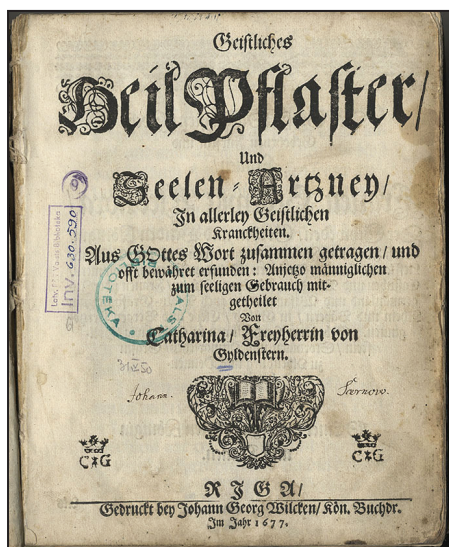 Geistliches
Heil Pflaster/
Und
Seelen-Artzney/
In allerley Geistlichen
Kranckheiten.
Aus GOttes Wort zusammen getragen/ und
offt bewähret erfunden: Anjetzo männiglichen
zum seeligen Gebrauch mit-
getheilet
Von
Catharina/ Freyherrin von
Gyldenstern.
Inv. 630.590
Johann.
C G
C G
RIGA/
Gedruckt bey Johann Georg Wilcken/ Kön. Buchdr.
Im Jahr 1677.